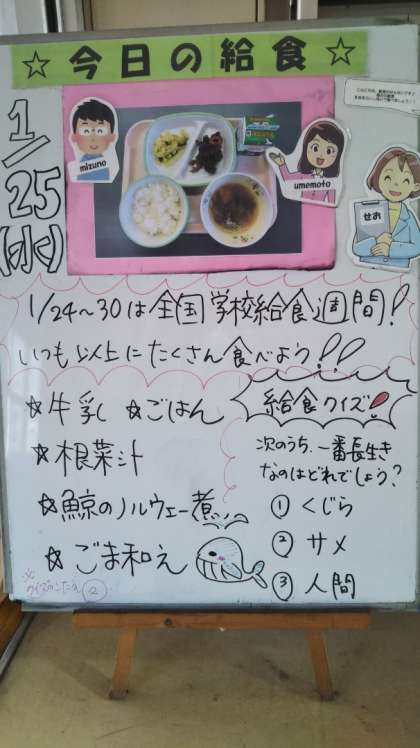 ☆今日の給食☆
1/25(水)
mizuno
umemoto
せお
1/24〜30は全国学校給食週間!
いつも以上にたくさん食べよう!!
☆牛乳 ☆ごはん
☆根菜汁
☆鯨のノルウェー煮
☆ごま和え
給食クイズ!
次のうち、一番長生き
なのはどれでしょう?
① くじら
② サメ
③ 人間
※
クイズのこたえ ②